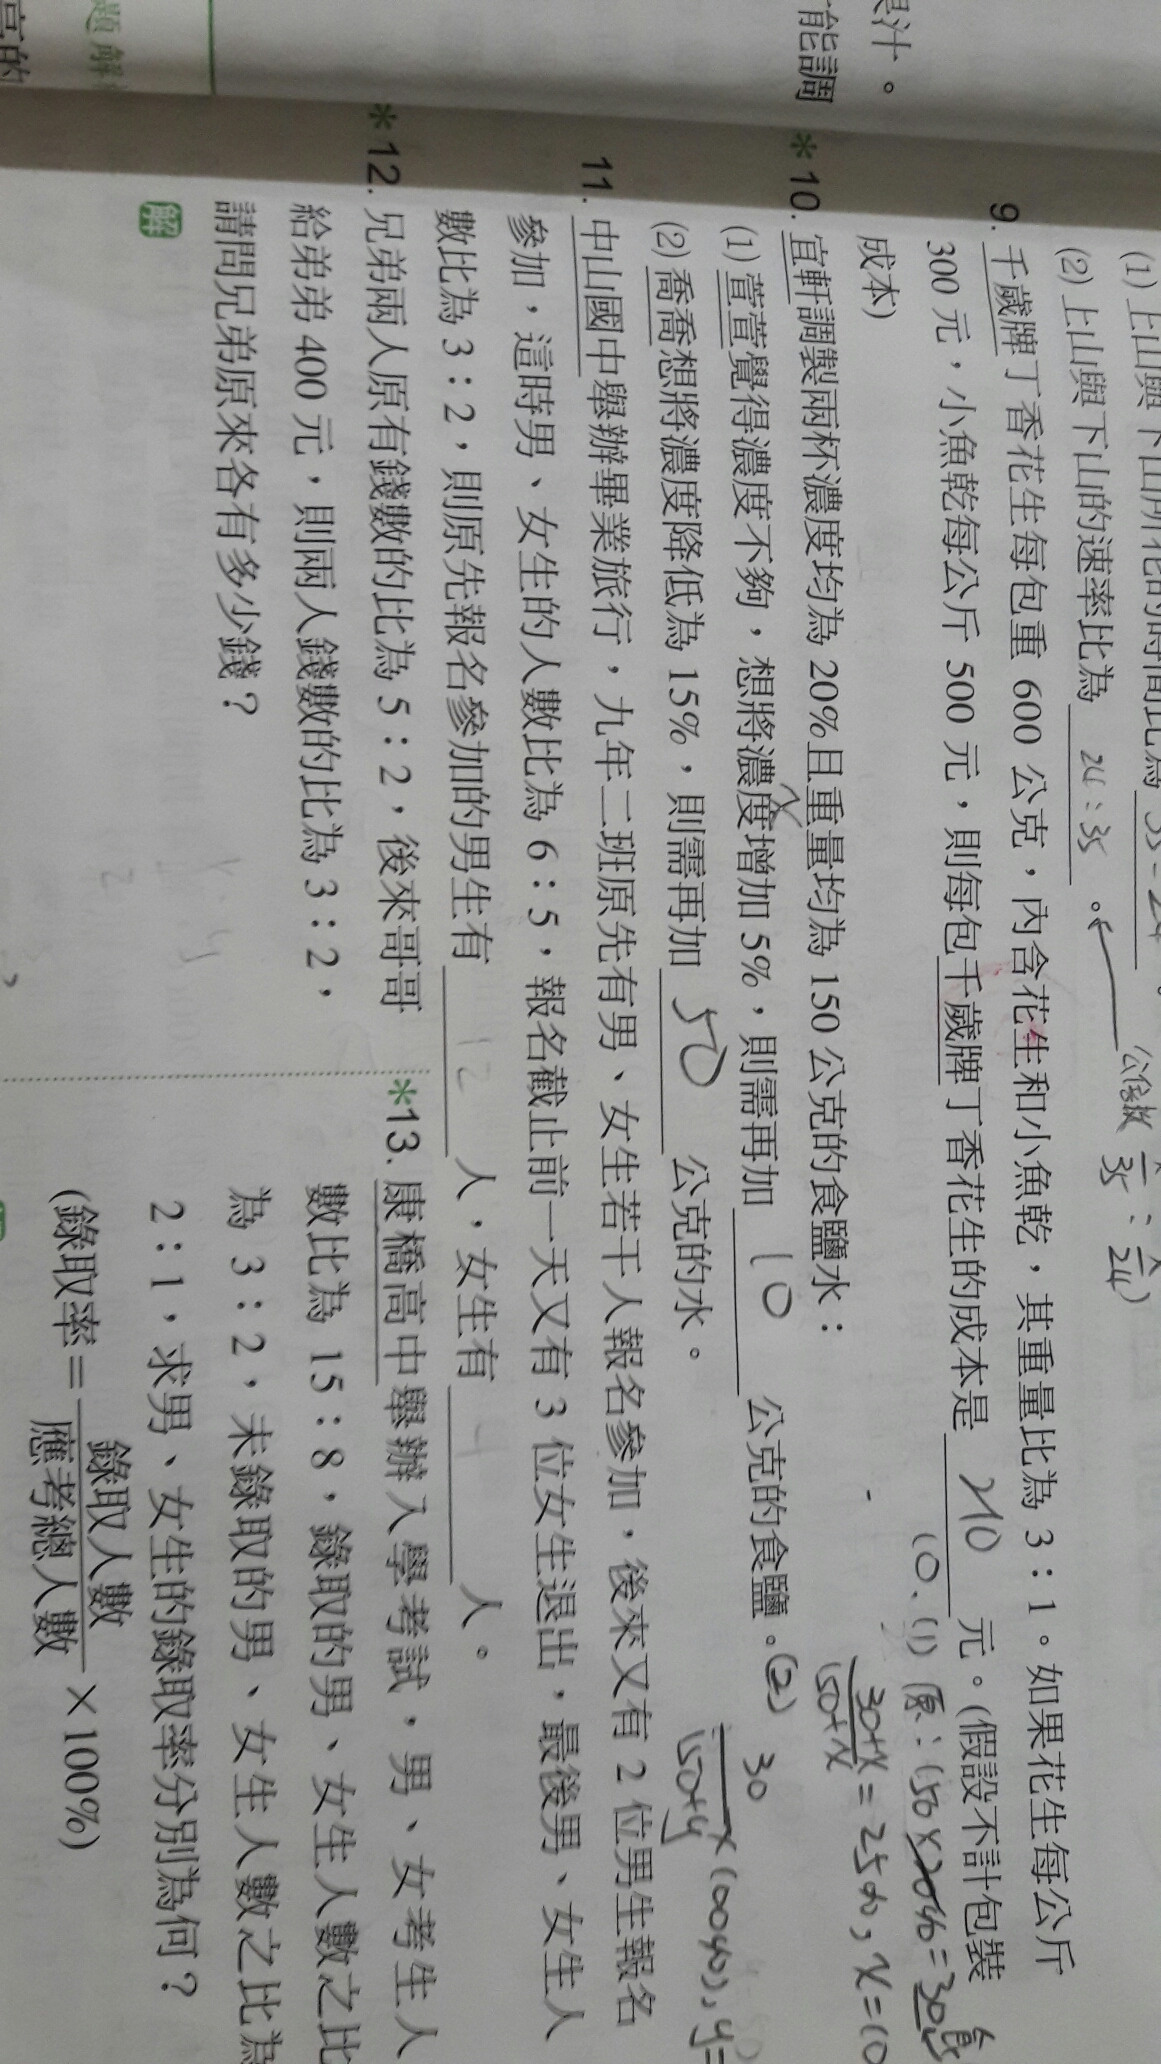 果汁。
能調
題解
高的
(1) 上山與下山所花的時間比為 35:24
(2) 上山與下山的速率比為 24:35 。
公倍數
x/35 : x/24)
9. 千歲牌丁香花生每包重 600 公克，內含花生和小魚乾，其重量比為 3:1。如果花生每公斤
300 元，小魚乾每公斤 500 元，則每包千歲牌丁香花生的成本是 210 元。(假設不計包裝
成本)
10.(1) 原:150×20%=30 食
(30+x)/(150+x) = 25%, x=10
*10. 宜軒調製兩杯濃度均為 20%且重量均為 150 公克的食鹽水：
(1) 萱萱覺得濃度不夠，想將濃度增加 5%，則需再加 10 公克的食鹽。
(2) 30/(150+y) ×100%, y=
(2) 喬喬想將濃度降低為 15%，則需再加 50 公克的水。
11. 中山國中舉辦畢業旅行，九年二班原先有男、女生若干人報名參加，後來又有 2 位男生報名
參加，這時男、女生的人數比為 6:5，報名截止前一天又有 3 位女生退出，最後男、女生人
數比為 3:2，則原先報名參加的男生有 人，女生有 人。
*12. 兄弟兩人原有錢數的比為 5:2，後來哥哥
給弟弟 400 元，則兩人錢數的比為 3:2，
請問兄弟原來各有多少錢？
解
*13. 康橋高中舉辦入學考試，男、女考生人
數比為 15:8，錄取的男、女生人數之比
為 3:2，未錄取的男、女生人數之比為
2:1，求男、女生的錄取率分別為何？
(錄取率=錄取人數/應考總人數×100%)